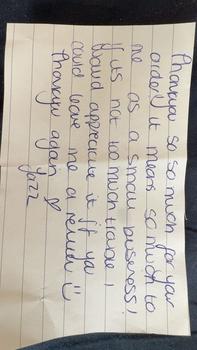 Thankyou so so much for your
order! it means so much to
me as a small business!
If its not too much trouble, I
Would appreciate it if you
could leave me a review :)
Thankyou again ♡
Jazz